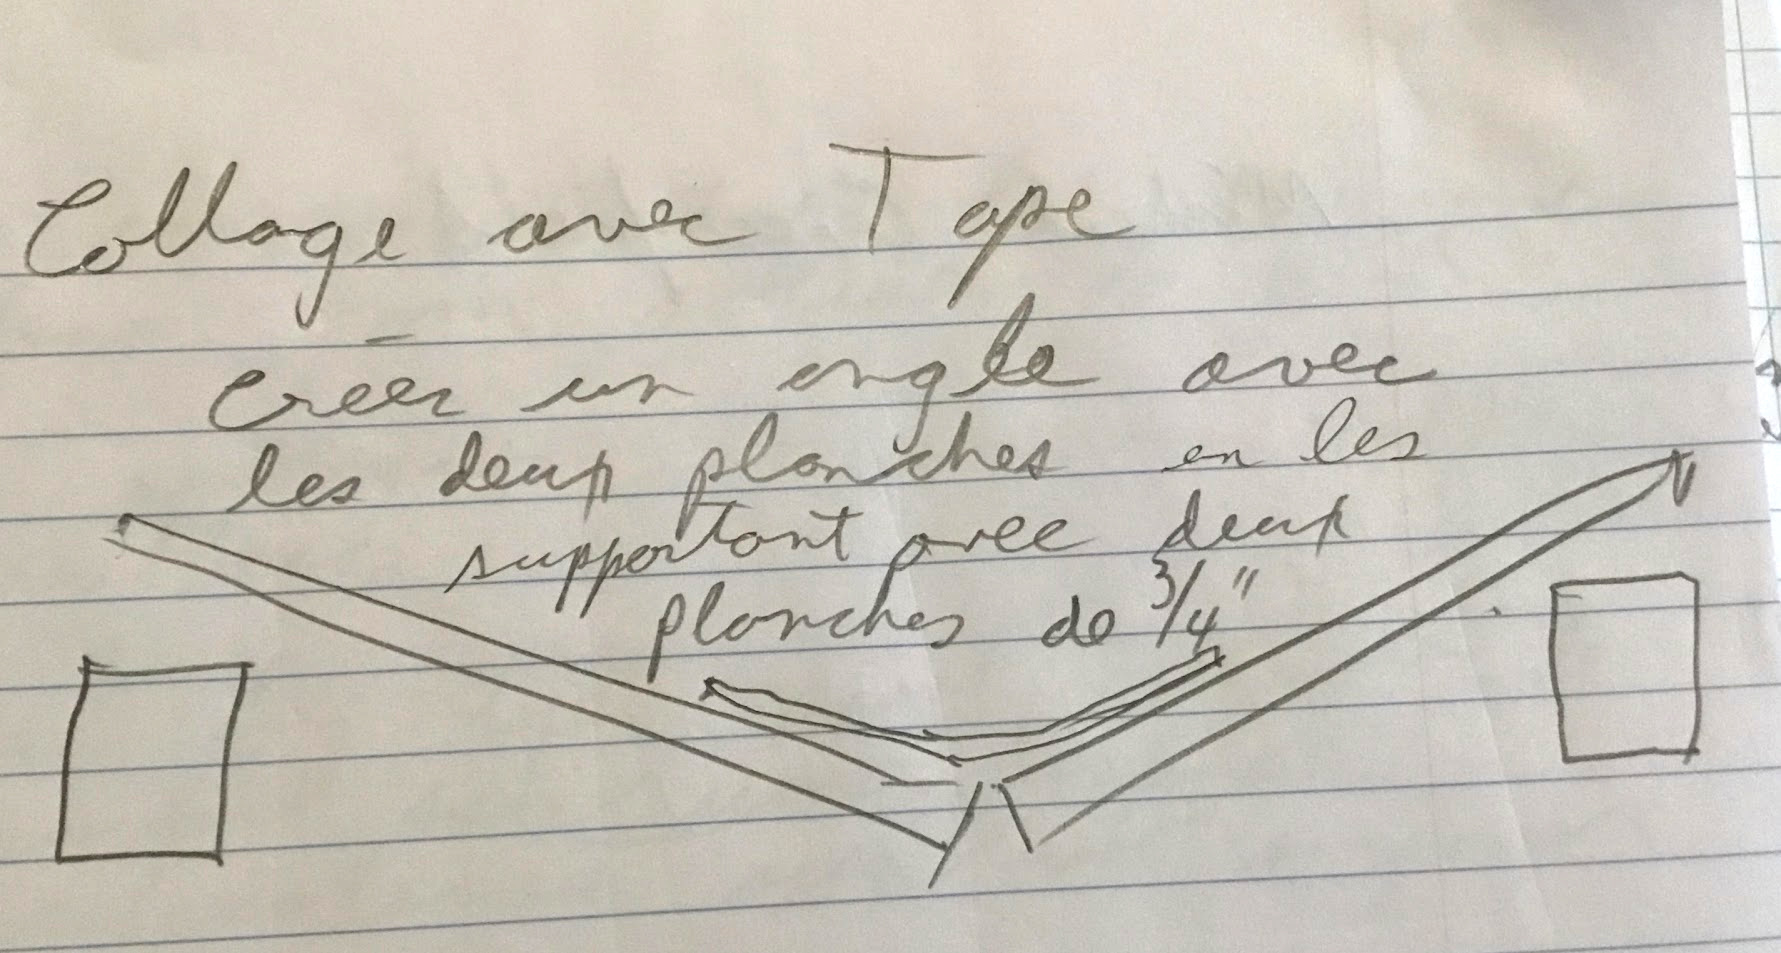 Collage avec Tape
créer un angle avec
les deux planches en les
supportant avec deux
planches de 3/4"